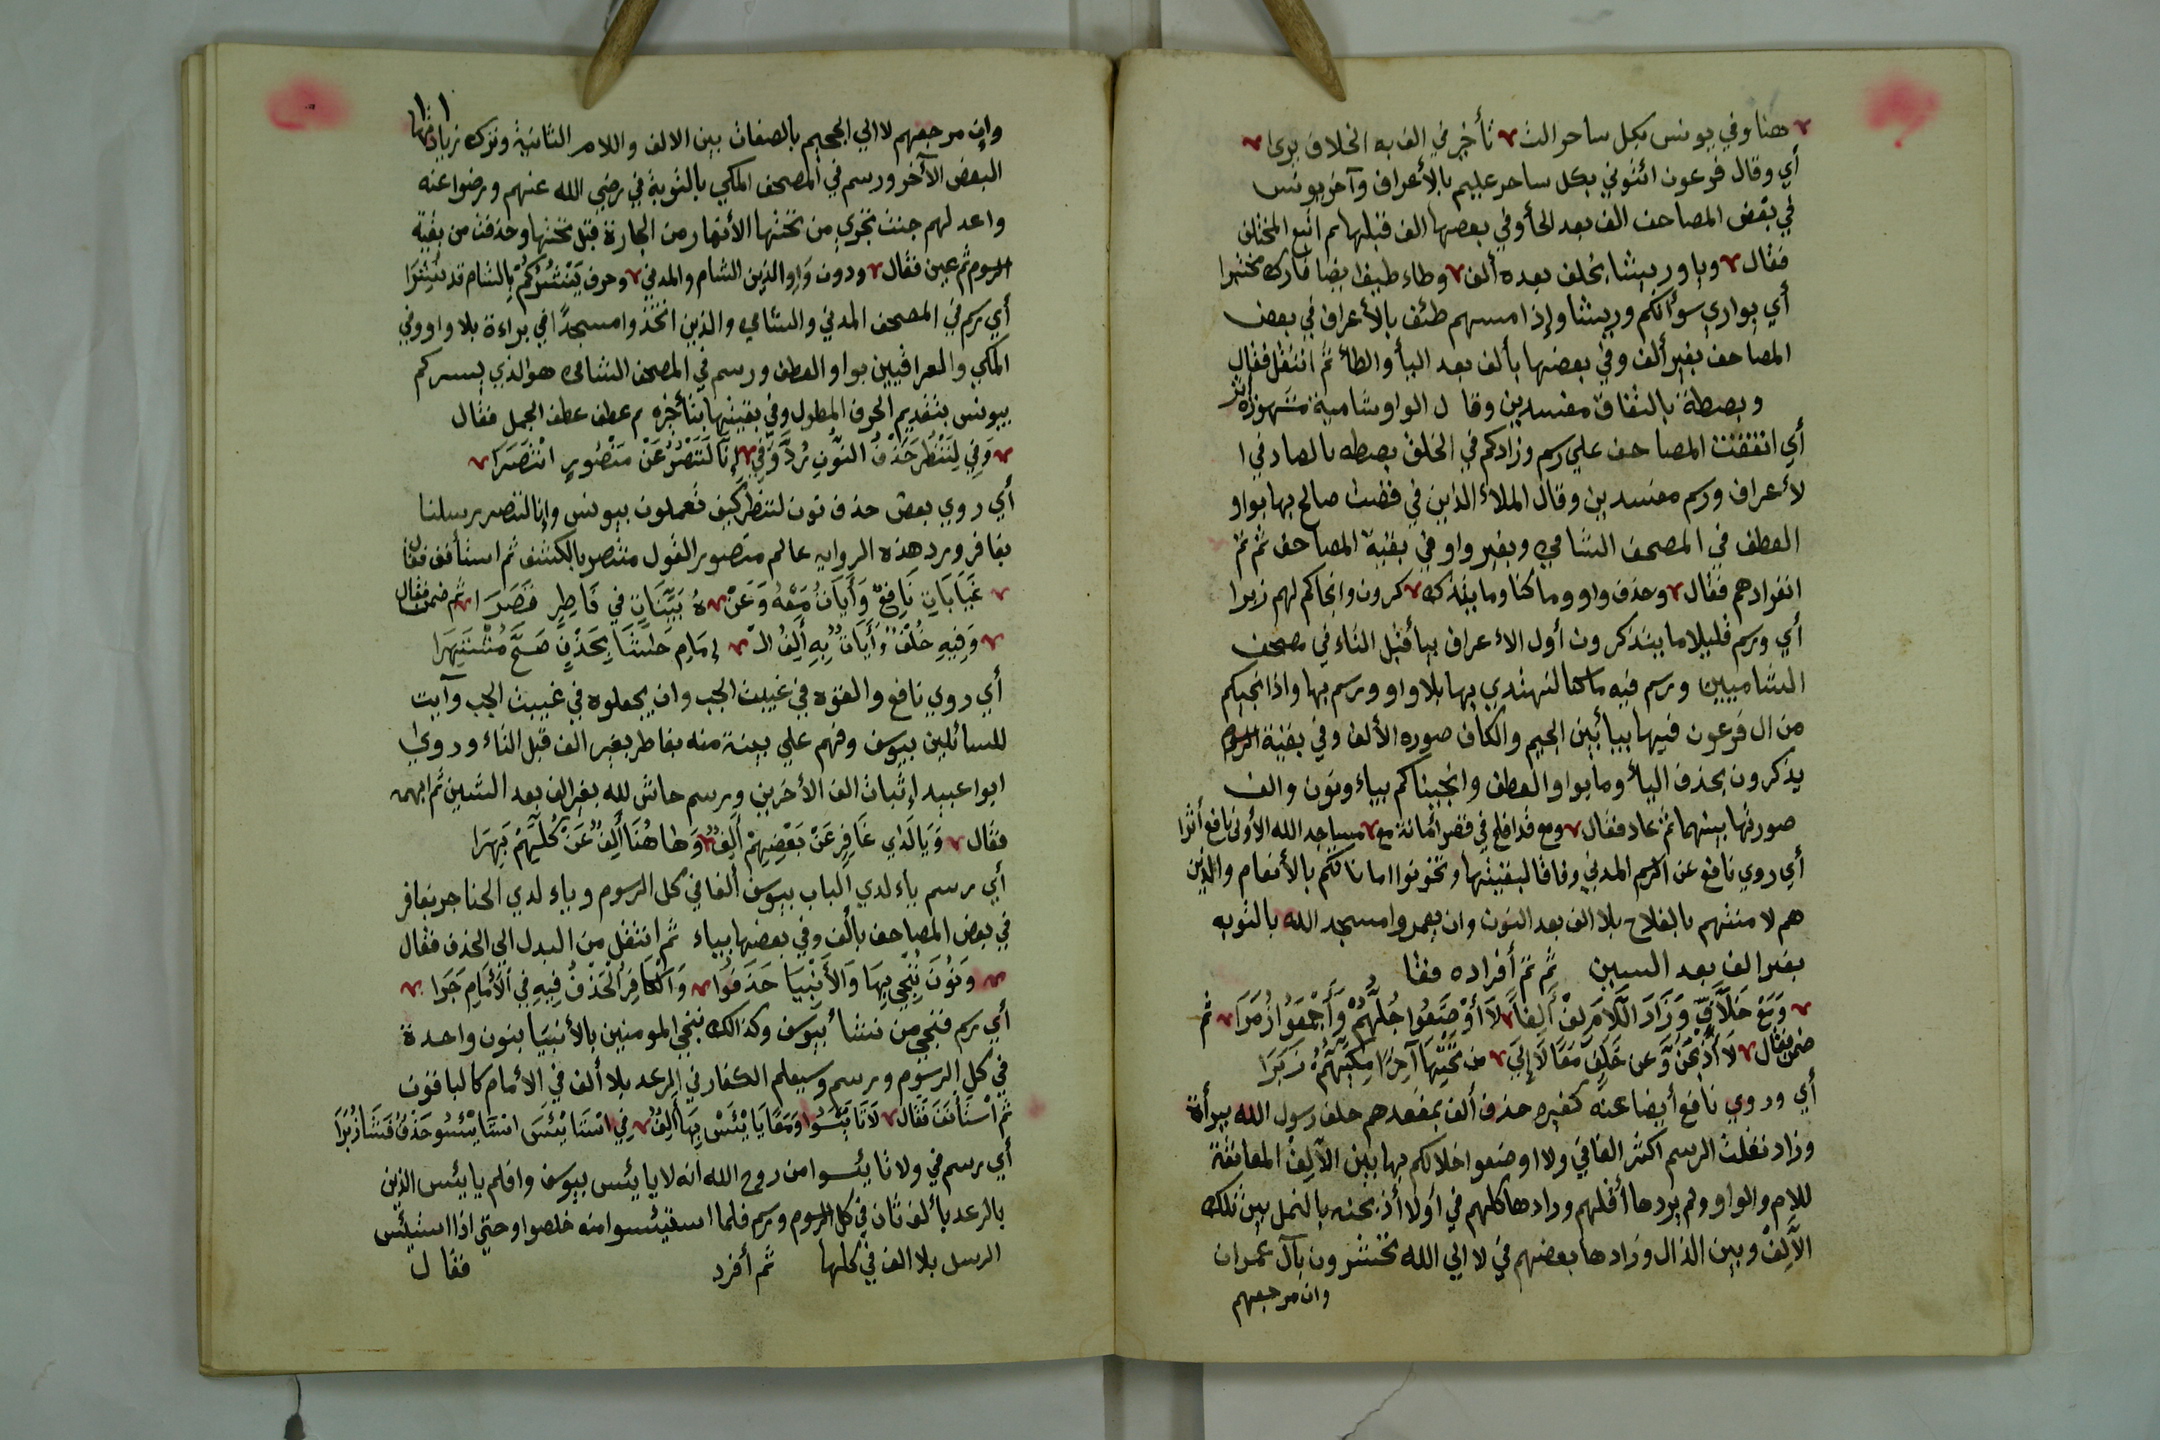 هنا وفي يونس بكل ساحر الت تأخير في الف به الخلاف يرى
أي وقال فرعون ائتوني بكل ساحر عليم بالأعراف وآخر يونس
في بعض المصاحف الف بعد الحأ وفي بعضها الف قبلها ثم اتبع المختلف
فقال ويا وريشا بخلف بعده ألف وطاء طيف ايضا فازك مختبرا
أي يواري سوآتكم وريشا وإذا مسهم طئف بالأعراف في بعض
المصاحف بغير ألف وفي بعضها بألف بعد اليأ والطأ ثم انتقل فقال
وبصطة باتفاق مفسدين وقال الواو شامية مشهورة أثر
أي اتفقت المصاحف علي رسم وزادكم في الخلق بصطه بالصاد في ا
لأعراف ورسم مفسدين وقال الملاء الذين في قصة صالح بها بواو
العطف في المصحف الشامي وبغير واو في بقية المصاحف ثم تم
انفرادهم فقال وحذف واو وما كنا وما يتذك كرون وانجاكم لهم زبرا
أي ورسم قليلا ما يتذكرون أول الأعراف بيأ قبل التاء في مصحف
الشاميين ورسم فيه ما كنا لنهتدي بها بلا واو ورسم بها واذ انجيكم
من ال فرعون فيها بيأ بين الجيم والكاف صوره الألف وفي بقية الرسوم
يذكرون بحذف اليأ وما بواو العطف وانجيناكم بياء ونون والف
صورتها بينهما ثم عاد فقال ومع قد افلح في قصر أمانة مع مساجد الله الأولى نافع أثرا
أي روي نافع عن الرسم المدني وفاقا لبقيتها وتخونوا اماناتكم بالأنفام والذين
هم لا منتهم بالفلاح بلا الف بعد النون وان يعمروا مسجد الله بالتوبه
بغير الف بعد السين ثم تم أفراده فقا
وَمَعْ خِلَافَ وَزَادَ اللَّامَ لِفْ أَلِفًا لَا أَوْضَعُوا جُلُّهُمْ وَأَجْمَعُوا زُمَرَا ثم
ضمن فقال لَا أَذْبَحَنَّ وَعن خَلَفَ مَعًا لَا إِلَى من تَحْتِهَا آخِرًا مَكِّيُّهُمْ زَبَرَا
أي وروي نافع أيضا عنه كغيره حذف ألف بمقعدهم خلف رسول الله ببرأة
وزاد نقلت الرسم اكثر الفا في ولا اوضعوا خلالكم بها بين الآلف المعانقة
للام والواو ولم يردها أقلهم وزادها كلهم في أولا أذبحنه بالنمل بين تلك
الآلِف وبين الذال وزادها بعضهم في لا الي الله تحشرون بآل عمران
وان مرجعهم
١١
وإن مرجعهم لا الي الجحيم بالصفات بين الالف واللام الثانية وترك زيادتها
البعض الآخر ورسم في المصحف المكي بالتوبة في رضي الله عنهم ورضوا عنه
واعد لهم جنت تجري من تحتها الأنهار من الجارة قبل تحتها وحذفت من بقية
الرسوم ثم عين فقال ودون وَاو الذين الشام والمدني وحرف يَنْشُرُكُمْ بالشام قد نُشِرَا
أي رسم في المصحف المدني والشامي والذين اتخذوا مسجدًا في براءة بلا واو وفي
المكي والعراقيين بواو العطف ورسم في المصحف الشامي هو الذي ينشركم
بيونس بتقديم الحرف المطول وفي بقيتها بتأخره ثم عطف عطف الجمل فقال
وَفِي لِنَنْظُرَ حَذْفُ النُّونِ رُدَّ وَفِي إِنَّا لَنَنْصُرُ عَنْ مَنْصُورٍ انْتَصَرَا
أي روي بعض حذف نون لننظر كيف تعملون بيونس وإنا لننصر رسلنا
بغافر ورد هذه الروايه عالم منصور القول منتصر بالكشف ثم استأنف فقال
غَيَابَاتِ نَافِعٌ وَآيَاتٌ مَعْهُ وَعَنْ هُ بَيِّنَاتٍ في فَاطِرٍ قَصَرَا ثم ضمن فقال
وَفِيهِ خُلْفٌ وَآيَاتٌ بِهِ أَلِفُ الْ إِمَامِ حَاشَا بِحَذْفٍ صَحَّ مُشْتَهِرَا
أي روي نافع والقوه في غيبت الجب وان يجعلوه في غيبت الجب وآيت
للسائلين بيوسف وفهم علي بينة منه بفاطر بغير الف قبل التاء وروي
ابوا عبيد إثبات الف الأخرين ورسم حاش لله بغير الف بعد الشين ثم ابهمه
فقال وَيَا لَدَاي غَافِرٍ عَنْ بَعْضِهِمْ أَلِفٌ وَهَا هُنَا أَلِفٌ عَنْ كُلِّهِمْ بَهَرَا
أي رسم ياء لدي الباب بيوسف ألفا في كل الرسوم وياء لدي الحناجر بغافر
في بعض المصاحف بألف وفي بعضها بياء ثم انتقل من البدل الي الحذف فقال
وَنُونَ نُنْجِي بِهَا وَالأَنْبِيَا حَذَفُوا وَالْكَافِرُ الْحَذْفُ فِيهِ فِي الْأِمَامِ جَرَا
أي رسم فنجي من نشأ بيوسف وكذالك ننجي المومنين بالأنبيا بنون واحدة
في كل الرسوم ورسم وسيعلم الكفار في الرعد بلا ألف في الأمام كالباقون
ثم اسْتَأْنَفَ فَقَالَ لَا تَايْئَسُوا وَمَعًا يَا يْئَسْ بِهَا أَلِفٌ فِي اسْتَا يْئَسَ اسْتَا يْئَسُو حَذْفٌ فَشَا زُبُرَا
أي رسم في ولا تا يئسوا من روح الله انه لا يا يئس بيوسف وافلم يا يئس الذين
بالرعد بألف ثان في كل الرسوم ورسم فلما استيئسوا منه خلصوا وحتي اذا استيئس
الرسل بلا الف في كلها ثم أفرد فقال